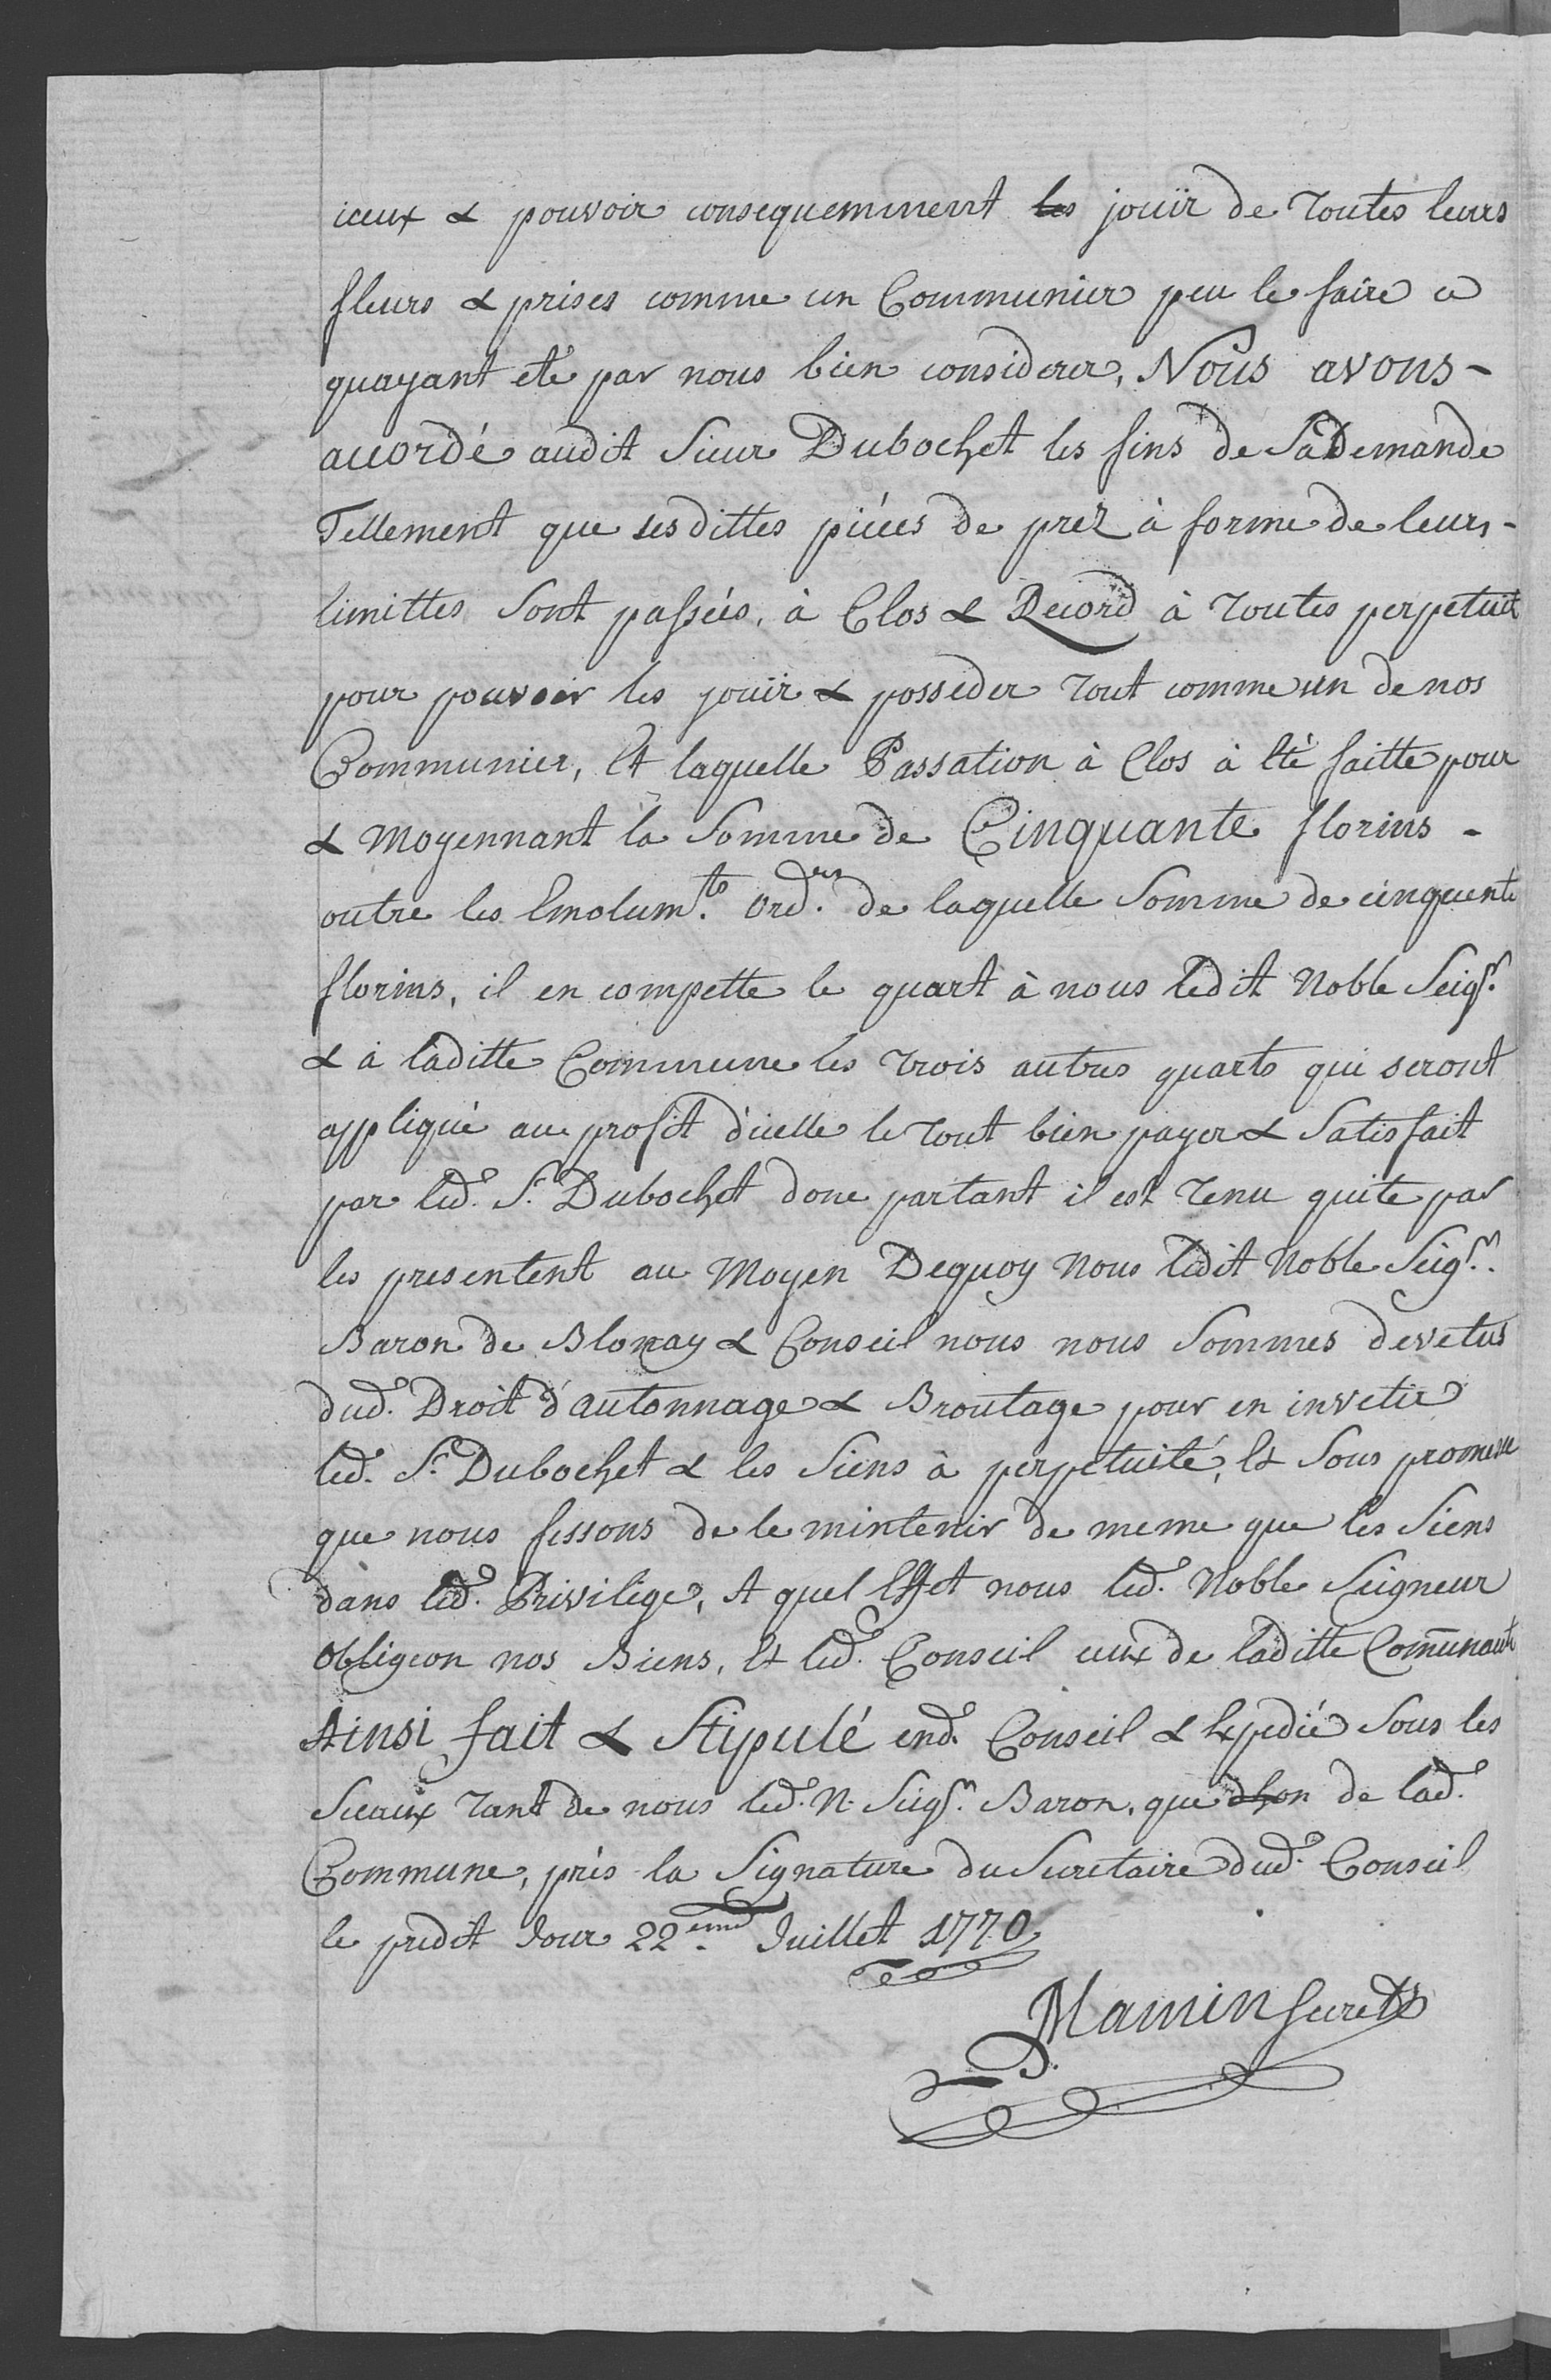 iceux & pouvoir consequemment les jouïr de Toutes leurs
fleurs & prises comme un Communier peu le faire ce
quayant eté par nous bien considerer, Nous avons -
accordé audit Sieur Dubochet les fins de Sa Demande
Tellement que sesdittes piéces de prez à forme de leurs -
limittes Sont passées, à Clos & Record à Toutes perpetuit
pour pouvoir les jouïr & posseder Tout comme un de nos
Communier, Et laquelle Passation à Clos à Eté faitte pour
& Moyennant la Somme de Cinquante florins -
outre les Emolum.ts Ord.res de laquelle Somme de cinquente
florins, il en compette le quart à nous ledit Noble Seig.r
& à laditte Commune les Trois autres quarts qui seront
appliqué au profit d'icelle le Tout bien payer & Satisfait
par led. S.r Dubochet donc partant il est Tenu quite par
les presentent au Moyen Dequoy Nous ledit Noble Seig.r
Baron de Blonay & Conseil nous nous Sommes devetus
dud. Droit d'autonnage & Broutage pour en invetir
led. S.r Dubochet & les Siens à perpetuité, Et Sous promesse
que nous fessons de le mintenir de meme que les Siens
dans led. Privilége, A quel Effet nous led. Noble Seigneur
Obligeon nos Biens, Et led. Conseil ceux de laditte Comunaut
Ainsi fait & Stipulé end. Conseil & Expedié Sous les
Sceaux Tant de nous led. N. Seig.r Baron, que dhon de lad.
Commune, prés la Signature du Secretaire dud. Conseil
le predit Jour 22.eme Juillet 1770
Mamin Secret.